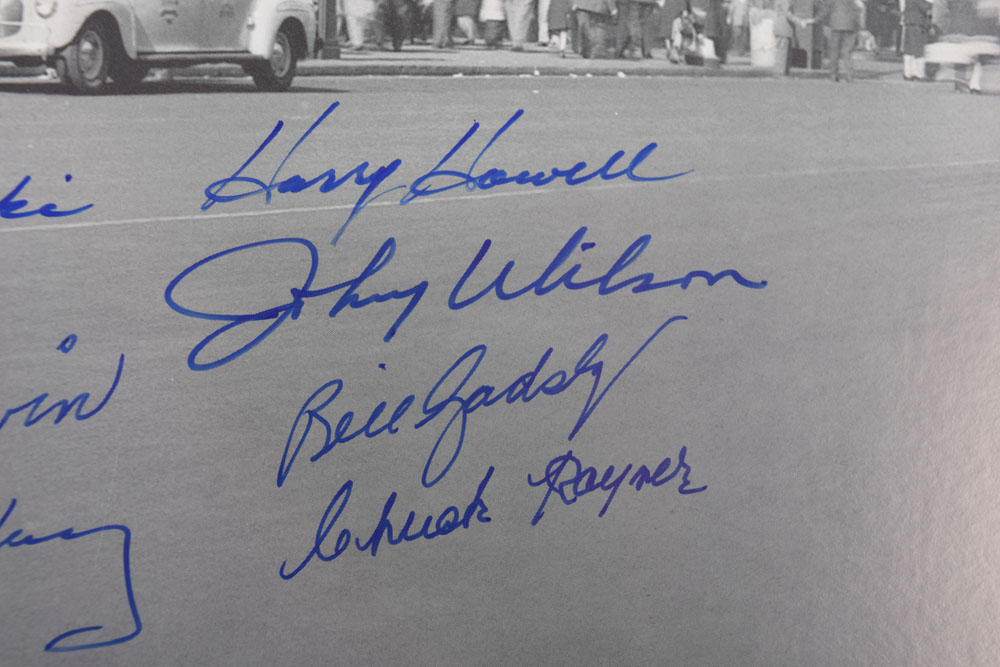 ki Harry Howell
Johnny Wilson
vin
Bill Gadsby
Chuck Rayner